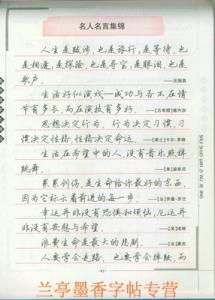 名人名言集锦
人生是跋涉，也是旅行，是等待，也
是相逢，是探险，也是寻宝，是眼泪，也是
歌声。
——汪国真
生活好似演戏——成功与否不在情
节有多长，而在演技有多好。
思想决定行为，行为决定习惯，习
惯决定性格，性格决定命运。
生活在希望中的人，没有音乐照样
跳舞。
累累创伤，是生命给你最好的东西，
因为它标示着前进的每一步。
——[法]罗曼·罗兰
幸运并非没有恐惧和烦恼，厄运并
非没有安慰与希望。
浪费生命是最大的悲剧。
人要学会走路，也要学会摔跤，而
兰亭墨香字帖专营